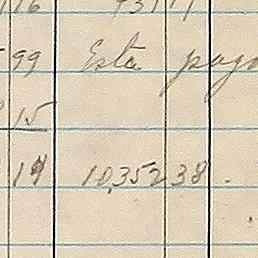 99 Esta pago
15
14 10,352 38.